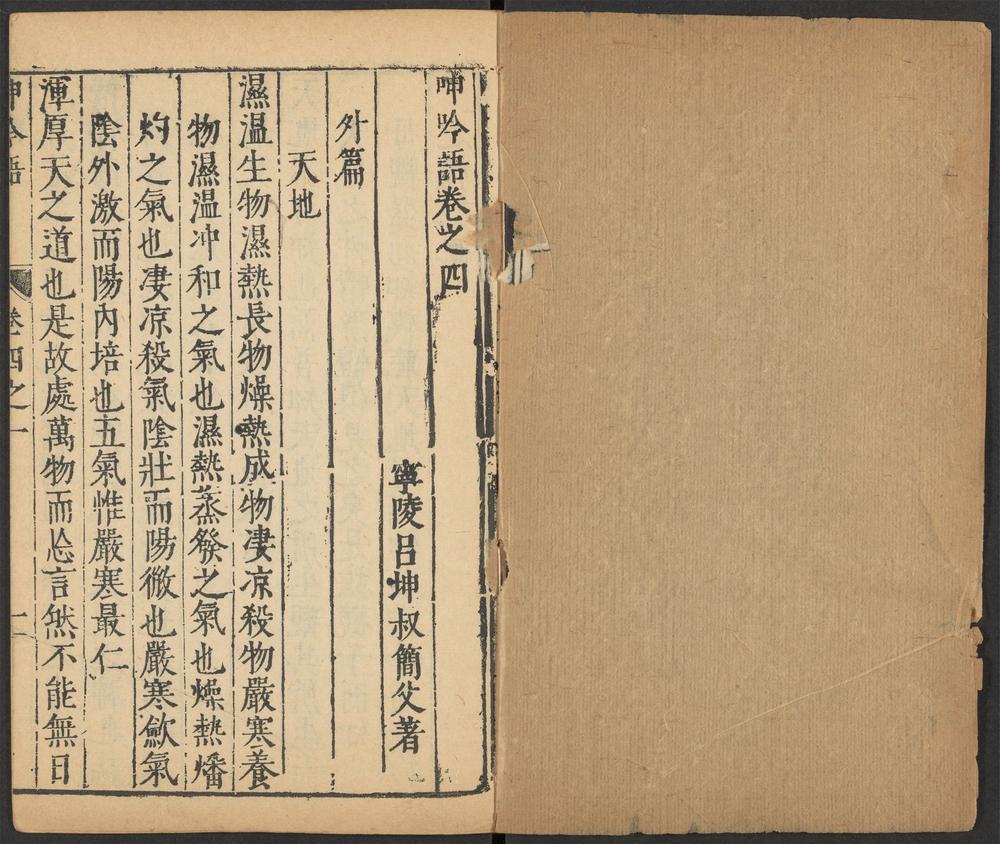 呻吟語卷之四
寧陵呂坤叔簡父著
外篇
天地
濕温生物濕熱長物燥熱成物凄凉殺物嚴寒養
物濕温冲和之氣也濕熱蒸發之氣也燥熱燔
灼之氣也凄凉殺氣陰壯而陽微也嚴寒歛氣
陰外激而陽内培也五氣惟嚴寒最仁
渾厚天之道也是故處萬物而忘言然不能無日
呻吟語 卷四之一